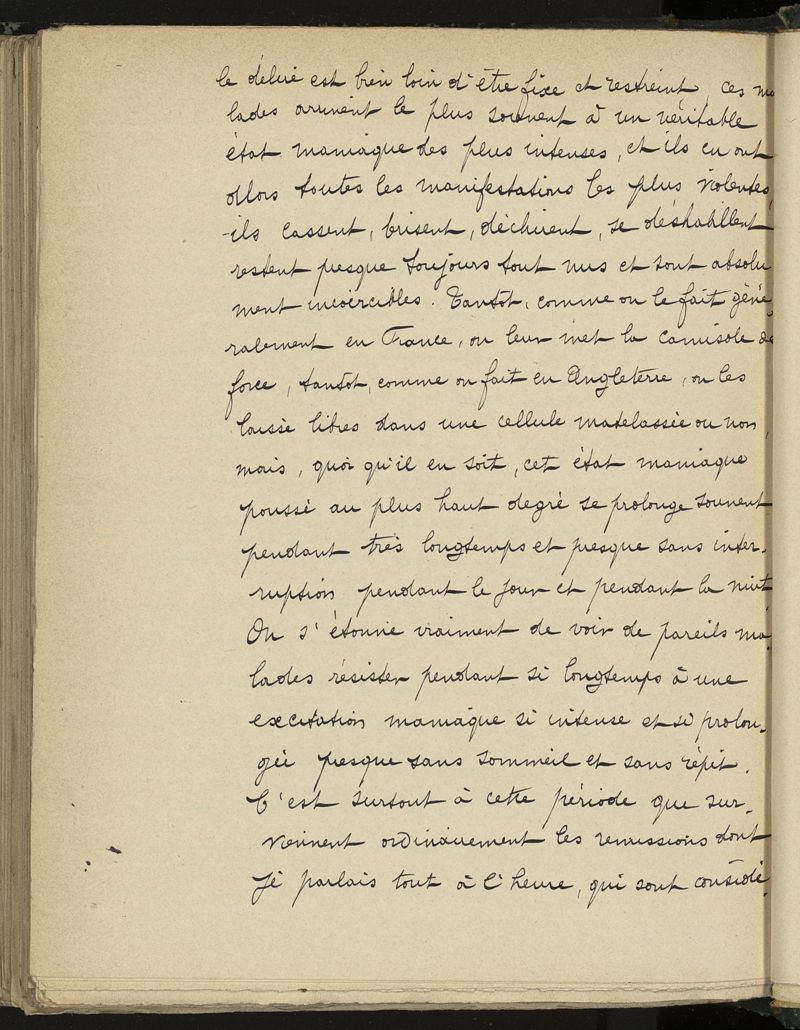 le délire est bien loin d'être fixe et restreint, ces ma
lades arrivent le plus souvent à un véritable
état maniaque des plus intenses, et ils en ont
alors toutes les manifestations les plus violentes,
ils cassent, brisent, déchirent, se déshabillent
restent presque toujours tout nus et sont absolu
ment incoërcibles. Tantôt, comme on le fait géné
ralement en France, on leur met la camisole de
force, tantôt, comme on fait en Angleterre, on les
laisse libres dans une cellule matelassée ou non,
mais, quoi qu'il en soit, cet état maniaque
poussé au plus haut degré se prolonge souvent
pendant très longtemps et presque sans inter-
ruption pendant le jour et pendant la nuit
On s'étonne vraiment de voir de pareils ma
lades résister pendant si longtemps à une
excitation maniaque si intense et si prolon-
gée presque sans sommeil et sans répit.
C'est surtout à cette période que sur-
viennent ordinairement les rémissions dont
je parlais tout à l'heure, qui sont considé